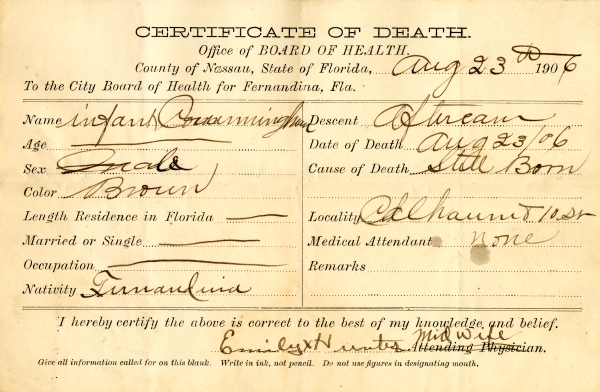 CERTIFICATE OF DEATH.
Office of BOARD OF HEALTH.
County of Nassau, State of Florida, Aug 23th 1906
To the City Board of Health for Fernandina, Fla.
Name infant
Age
Sex Male
Color Brown
Length Residence in Florida
Married or Single
Occupation
Nativity
Descent
Date of Death Aug 23/06
Cause of Death Still Born
Locality Calhoun & 10 St
Medical Attendant none
Remarks
I hereby certify the above is correct to the best of my knowledge and belief.
Emily x Hunter Midwife
Attending Physician.
Give all information called for on this blank. Write in ink, not pencil. Do not use figures in designating month.